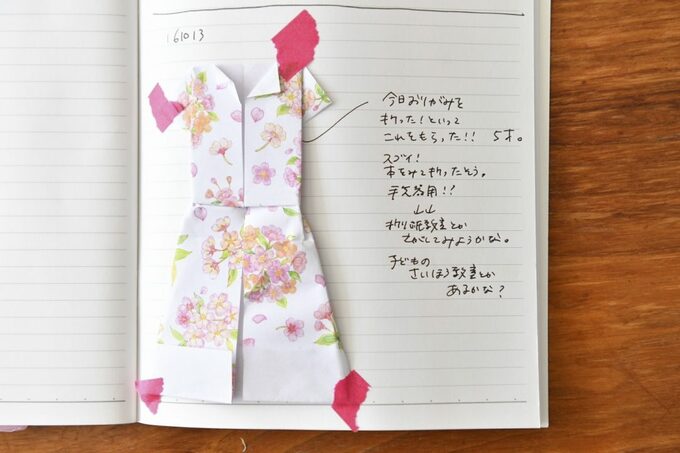 161013
今日おりがみを
折った!といって
これをもらった!! 5才。
スゴイ!
本をみて折ったそう。
手先器用!!
折り紙教室とか
さがしてみようかな。
子どもの
さいほう教室とか
あるかな?